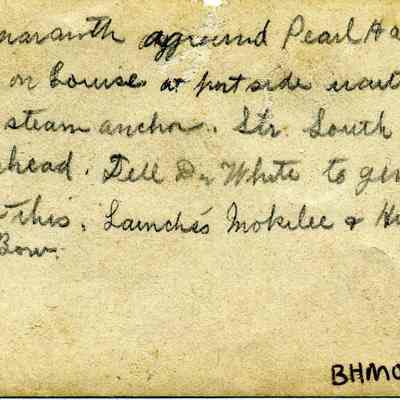 maranth aground Pearl Ha
on Louise at port side wait
steam anchor. Str. South
ahead. Tell Dr White to giv
this. Launches Mokilee & Hu
Bow.
BHMC